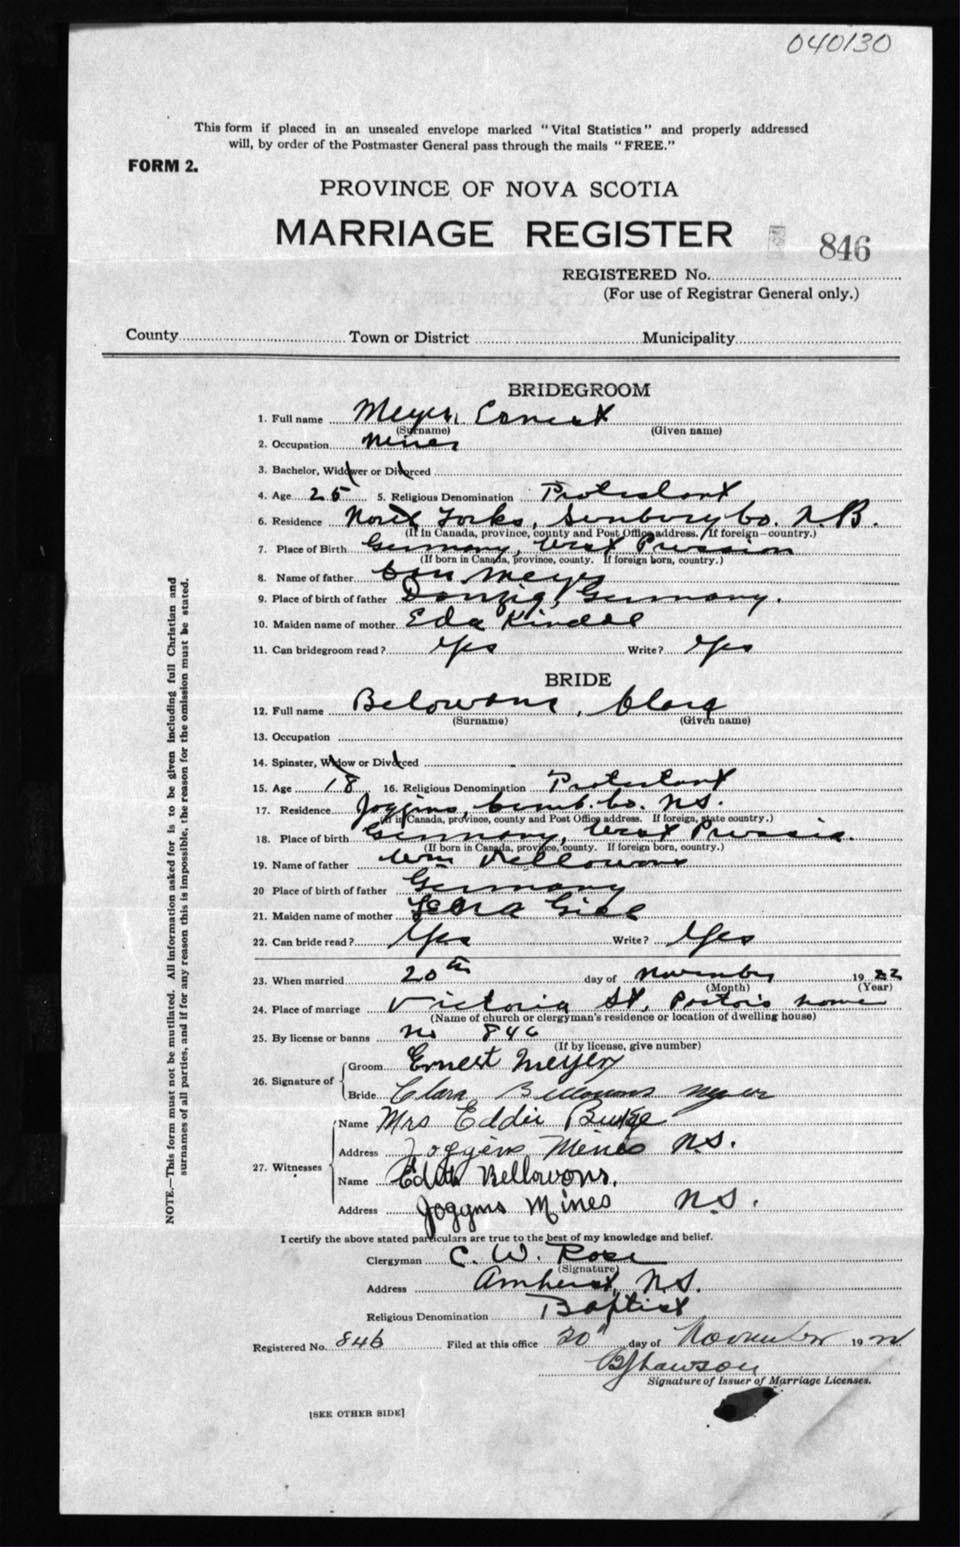 040130
This form if placed in an unsealed envelope marked "Vital Statistics" and properly addressed
will, by order of the Postmaster General pass through the mails "FREE."
FORM 2.
PROVINCE OF NOVA SCOTIA
MARRIAGE REGISTER
846
REGISTERED No.
(For use of Registrar General only.)
County Town or District Municipality
BRIDEGROOM
1. Full name Meyer, Ernest
(Surname) (Given name)
2. Occupation Miner
3. Bachelor, Widower or Divorced
4. Age 25 5. Religious Denomination Protestant
6. Residence North Forks, Sunbury Co. N.B.
(If in Canada, province, county and Post Office address. If foreign—country.)
7. Place of Birth Germany, West Prussian
(If born in Canada, province, county. If foreign born, country.)
8. Name of father Meyer
9. Place of birth of father Danzig, Germany.
10. Maiden name of mother Eda Kindel
11. Can bridegroom read? Yes Write? Yes
BRIDE
12. Full name Belowons, Clara
(Surname) (Given name)
13. Occupation
14. Spinster, Widow or Divorced
15. Age 18 16. Religious Denomination Protestant
17. Residence Joggins, Cumb. Co. N.S.
(If in Canada, province, county and Post Office address. If foreign, state country.)
18. Place of birth Germany, West Prussia.
(If born in Canada, province, county. If foreign born, country.)
19. Name of father Wm Bellowons
20 Place of birth of father Germany
21. Maiden name of mother
22. Can bride read? Yes Write? Yes
23. When married 20th day of November 1922
(Month) (Year)
24. Place of marriage Victoria St, Pastor's home
(Name of church or clergyman's residence or location of dwelling house)
25. By license or banns No 846
(If by license, give number)
26. Signature of
Groom Ernest Meyer
Bride Clara Bellowons Meyer
27. Witnesses
Name Mrs Eddie Budge
Address Joggins Mines N.S.
Name Edith Bellowons.
Address Joggins Mines N.S.
I certify the above stated particulars are true to the best of my knowledge and belief.
Clergyman C. W. Rose
(Signature)
Address Amherst, N.S.
Religious Denomination Baptist
Registered No. 846 Filed at this office 20" day of November 1922
Signature of Issuer of Marriage Licenses.
[SEE OTHER SIDE]
NOTE.—This form must not be mutilated. All information asked for is to be given including full Christian and
surnames of all parties, and if for any reason this is impossible, the reason for the omission must be stated.